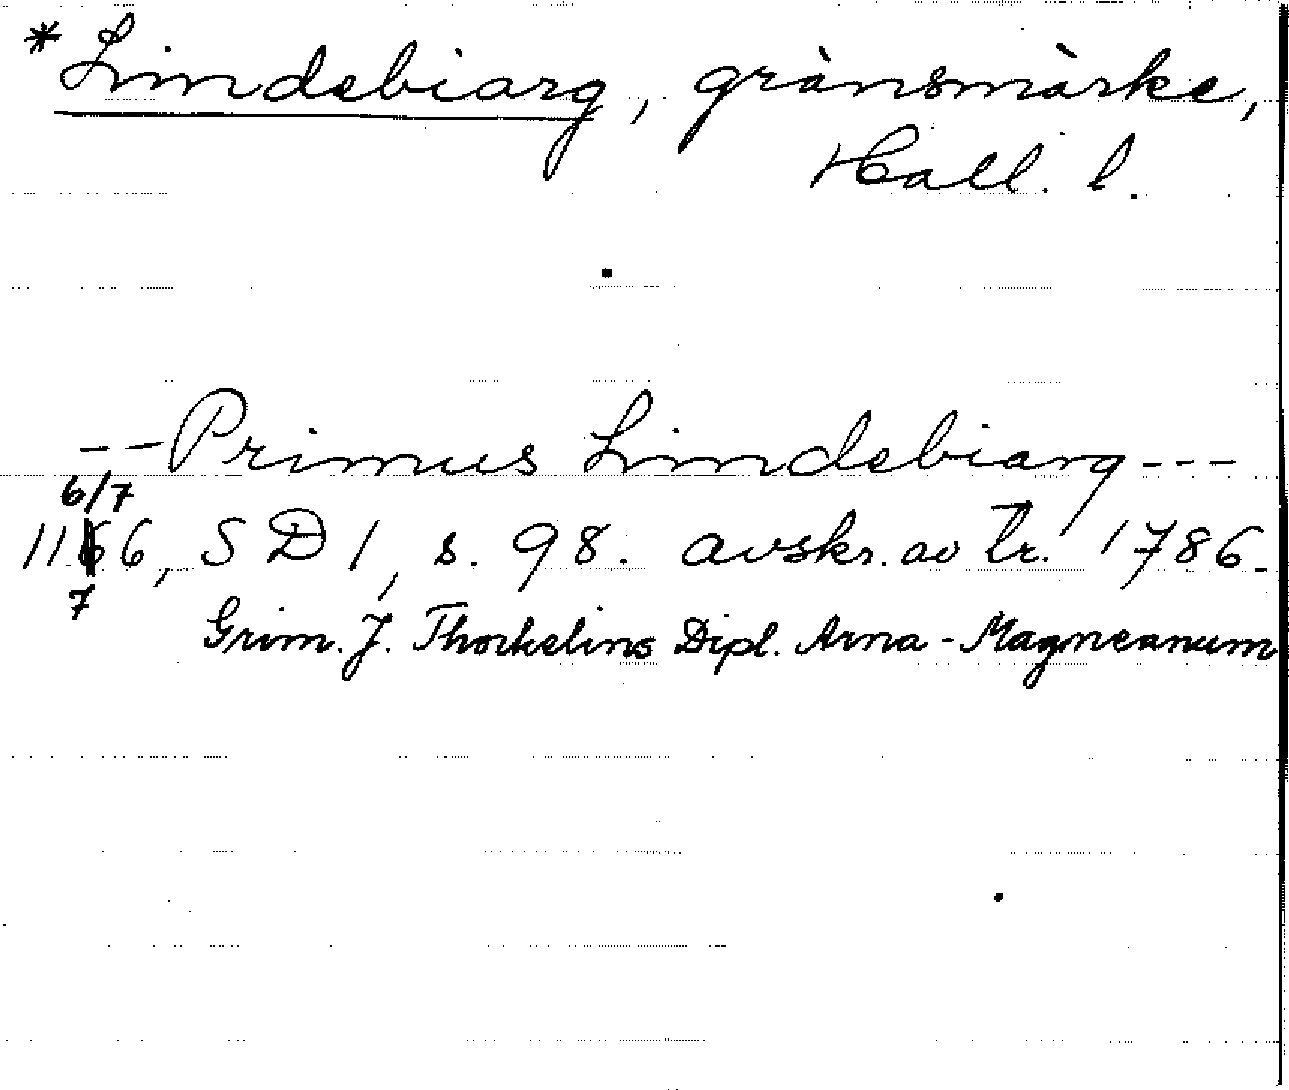 *Lindebiarg, gränsmärke,
Hall. l.
--Primus Lindebiarg---
6/7
1166, SD 1, s. 98. avskr. av tr. 1786.
7
Grim. J. Thorkelins Dipl. Arna-Magneanum